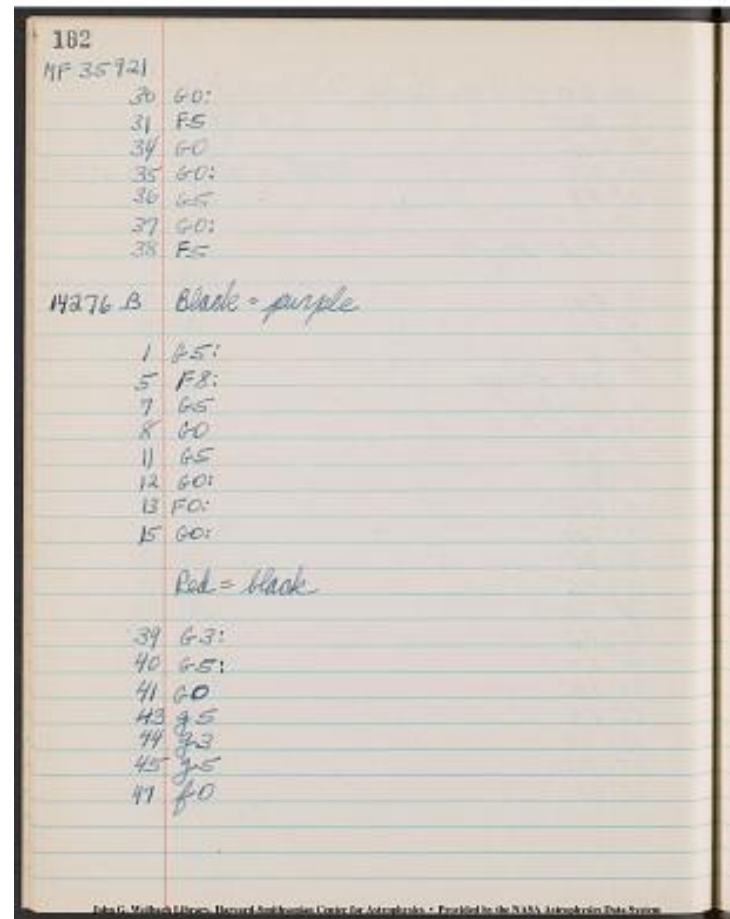 182
MF 35921
30 G0:
31 F5
34 G0
35 G0:
36 G5
37 G0:
38 F5
14276 B Black = purple
1 G5:
5 F8:
7 G5
8 G0
11 G5
12 G0:
13 F0:
15 G0:
Red = black
39 G3:
40 G5:
41 G0
43 g5
44 g3
45 g5
47 f0
John G. Wolbach Library, Harvard-Smithsonian Center for Astrophysics • Provided by the NASA Astrophysics Data System